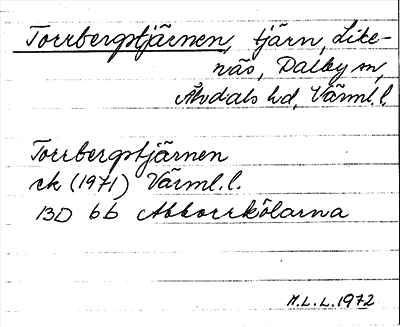 Torrbergstjärnen, tjärn, Like-
näs, Dalby sn,
Älvdals hd, Värml. l.
Torrbergstjärnen
ek (1971) Värml. l.
13D 6b Abborrkölarna
M.L.L. 1972